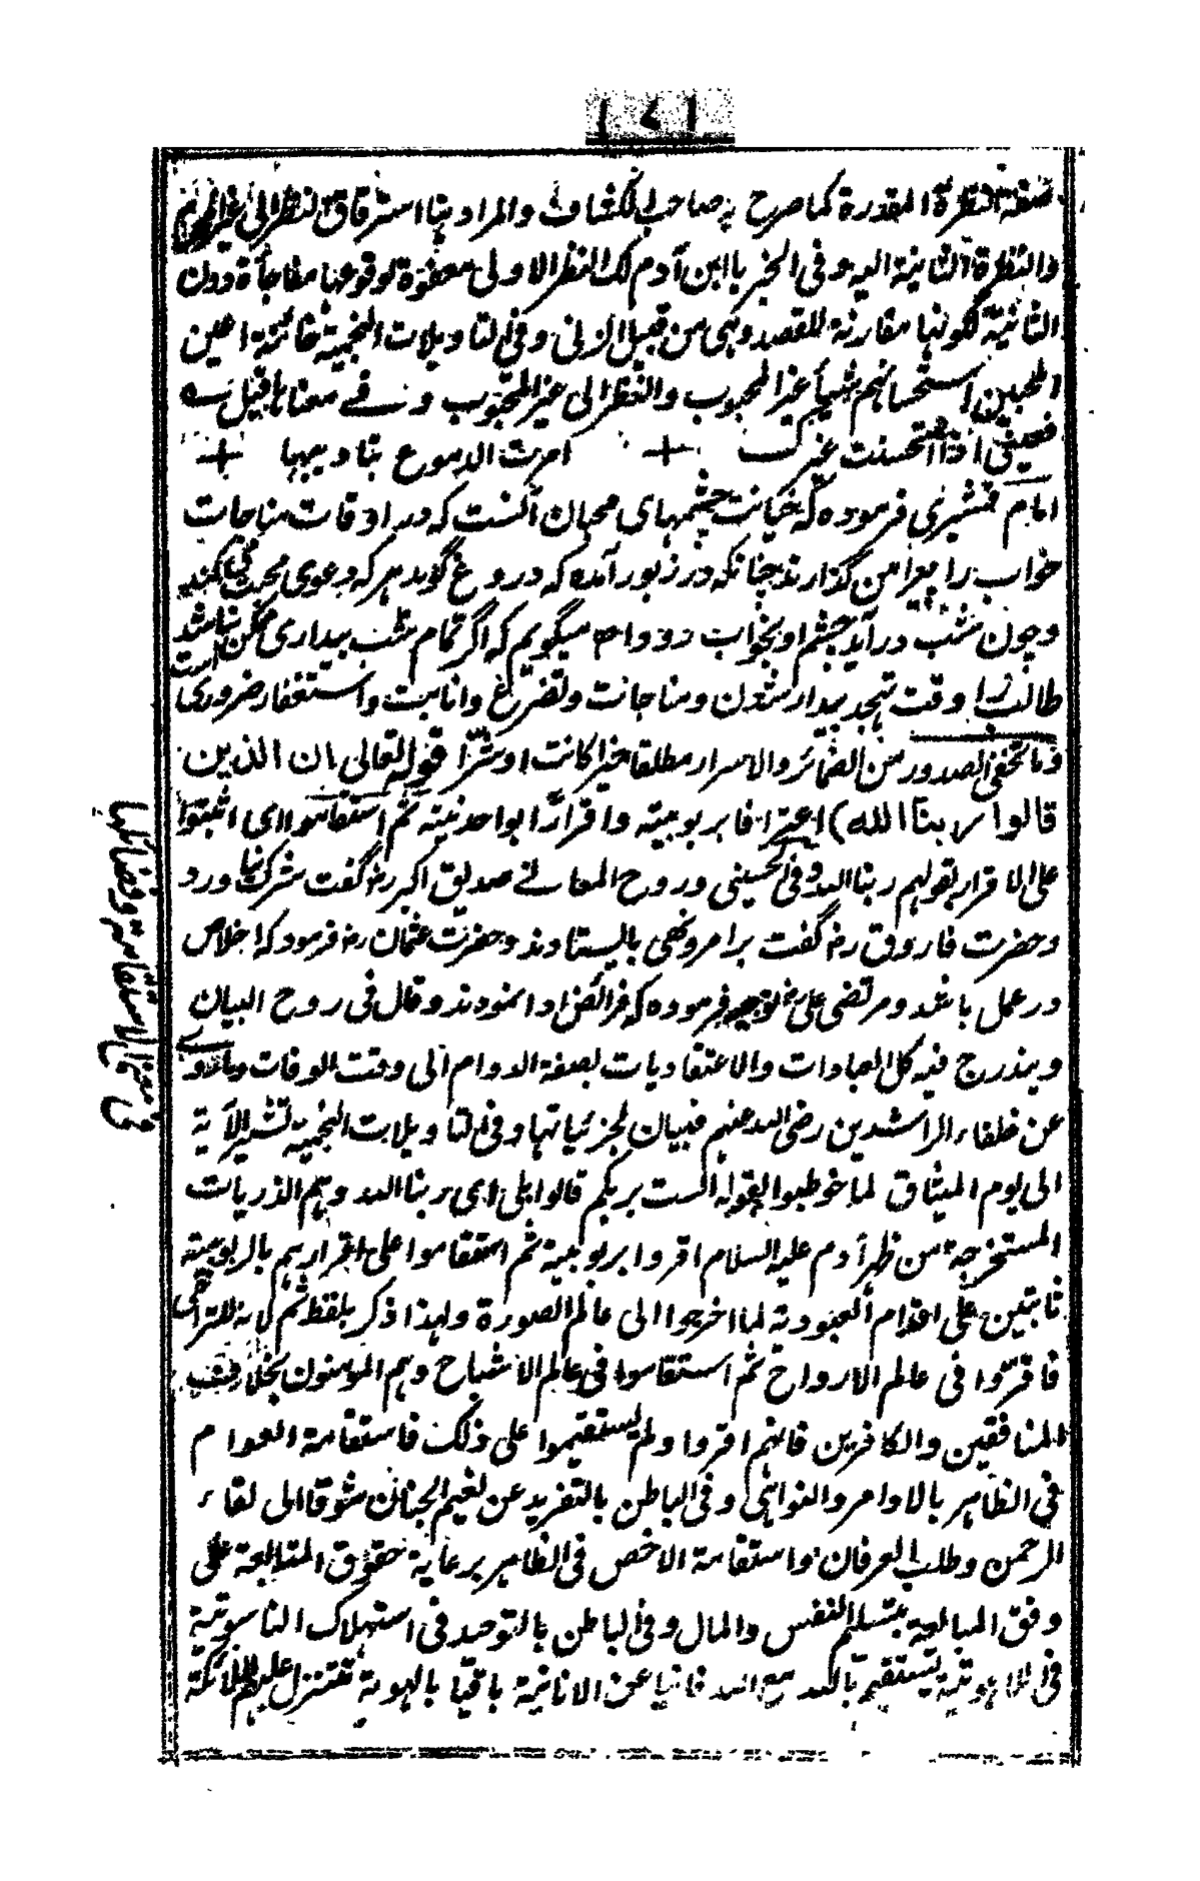 ١٤١
صفة النظرة المقدرة كما صرح به صاحب الكشاف والمراد بها استراق النظر الى غير المحرم
والنظرة الثانية اليه وفى الخبر يا ابن آدم لك النظر الاولى معفوة لوقوعها مفاجأة دون
الثانية لكونها مقارنة للقصد وهى من قبيل الزنى وفى التاويلات النجمية خائنة اعين
المحبين استحسانهم شيأ غير المحبوب والنظر الى غير المحبوب وفے معناه قيل
فعينى اذا استحسنت غيركم + امرت الدموع بتاديبها +
امام قشيرى فرموده كه خيانت چشمهاى محبان آنست كه در اوقات مناجات
خواب را پيرامن گذارند چنانكه در زبور آمده كه دروغ گويد هر كه دعوى محبت من كند
وچون شب در آيد چشم او بخواب رود واه ميگويم كه اگر تمام شب بيدارى ممكن نباشد
طالب را وقت تهجد بيدار شدن ومناجات وتضرع وانابت واستغفار ضرورى است
وما تخفى الصدور من الضمائر والاسرار مطلقا خيرا كانت او شرا قوله تعالى ان الذين
قالوا ربنا الله) اعترافا بربوبيته واقرارًا بواحدنيته ثم استقاموا اى اثبتوا
على الاقرار بقولهم ربنا الله وفى الحسينى وروح المعانے صديق اكبر رض گفت شرك نياورد
وحضرت فاروق رض گفت بر امر ونهى باليستادند وحضرت عثمان رض فرمود كه اخلاص
در عمل باشد ومرتضى على فرموده كه فرائض ادا نمودند وقال فى روح البيان
ويندرج فيه كل العبادات والاعتقاديات بصفة الدوام الى وقت الوفات وما روے
عن خلفاء الراشدين رضى الله عنهم فبيان لجزئياتها وفى التاويلات النجمية تشير الآية
الى يوم الميثاق لما خوطبوا بقوله الست بربكم قالوا بلى اى ربنا الله وهم الذريات
المستخرجة من ظهر آدم عليه السلام اقروا بربوبية ثم استقاموا على اقرارهم بالربوبية
ثابتين على اقدام العبودية لما اخرجوا الى عالم الصورة ولهذا ذكر بلفظ ثم لانه للتراخى
فاقرّوا فى عالم الارواح ثم استقاموا فى عالم الاشباح وهم المومنون بخلاف
المنافقين والكافرين فانهم اقروا ولم يستقيموا على ذلك فاستقامة العوام
فى الظاهر بالاوامر والنواهى وفى الباطن بالتفريد عن نعيم الجنان شوقا الى لقاء
الرحمن وطلب العرفان واستقامة الاخص فى الظاهر برعاية حقوق المتابعة على
وفق المبايعة بتسليم النفس والمال وفى الباطن بالتوحيد فى استهلاك الناسوتية
فى اللاهوتية يستقيم بالله مع الله فانيا عن الانانية باقيا بالهوية تتنزل عليهم الملائكة
فى بيان الاستقامة وفضائلها